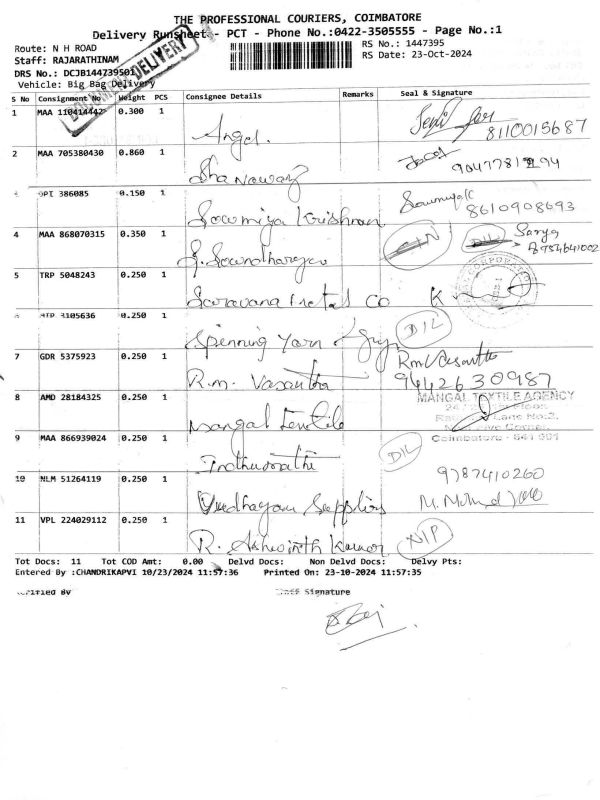 THE PROFESSIONAL COURIERS, COIMBATORE
Delivery Runsheet - PCT - Phone No.:0422-3505555 - Page No.:1
Route: N H ROAD
RS No.: 1447395
Staff: RAJARATHINAM
RS Date: 23-Oct-2024
DRS No.: DCJB144739501
DELIVERY
Vehicle: Big Bag Delivery
S No Consignment No Weight PCS Consignee Details Remarks Seal & Signature
1 MAA 110414442 0.300 1 Angel.
8110015687
2 MAA 705380430 0.860 1 Shanawaz
OPI 386085 0.150 1 Sowmiya Krishnan
Sowmiya K
8610908693
4 MAA 868070315 0.350 1
DIL Sarya
8754641002
5 TRP 5048243 0.250 1 Co
CORPORATION
3105636 0.250 1 Spinning Yarn
DIL
7 GDR 5375923 0.250 1 R.m. Vasantha
Rm Vasantha
9442630987
8 AMD 28184325 0.250 1 Mangal Textile
MANGAL TEXTILE AGENCY
Lane No.2,
Coimbatore - 641 001
9 MAA 866939024 0.250 1
DIL
10 NLM 51264119 0.250 1 Supplies
9787410260
11 VPL 224029112 0.250 1 R. Ashwinth Kumar
NIP
Tot Docs: 11 Tot COD Amt: 0.00 Delvd Docs: Non Delvd Docs: Delvy Pts:
Entered By :CHANDRIKAPVI 10/23/2024 11:57:36 Printed On: 23-10-2024 11:57:35
Verified By Staff Signature